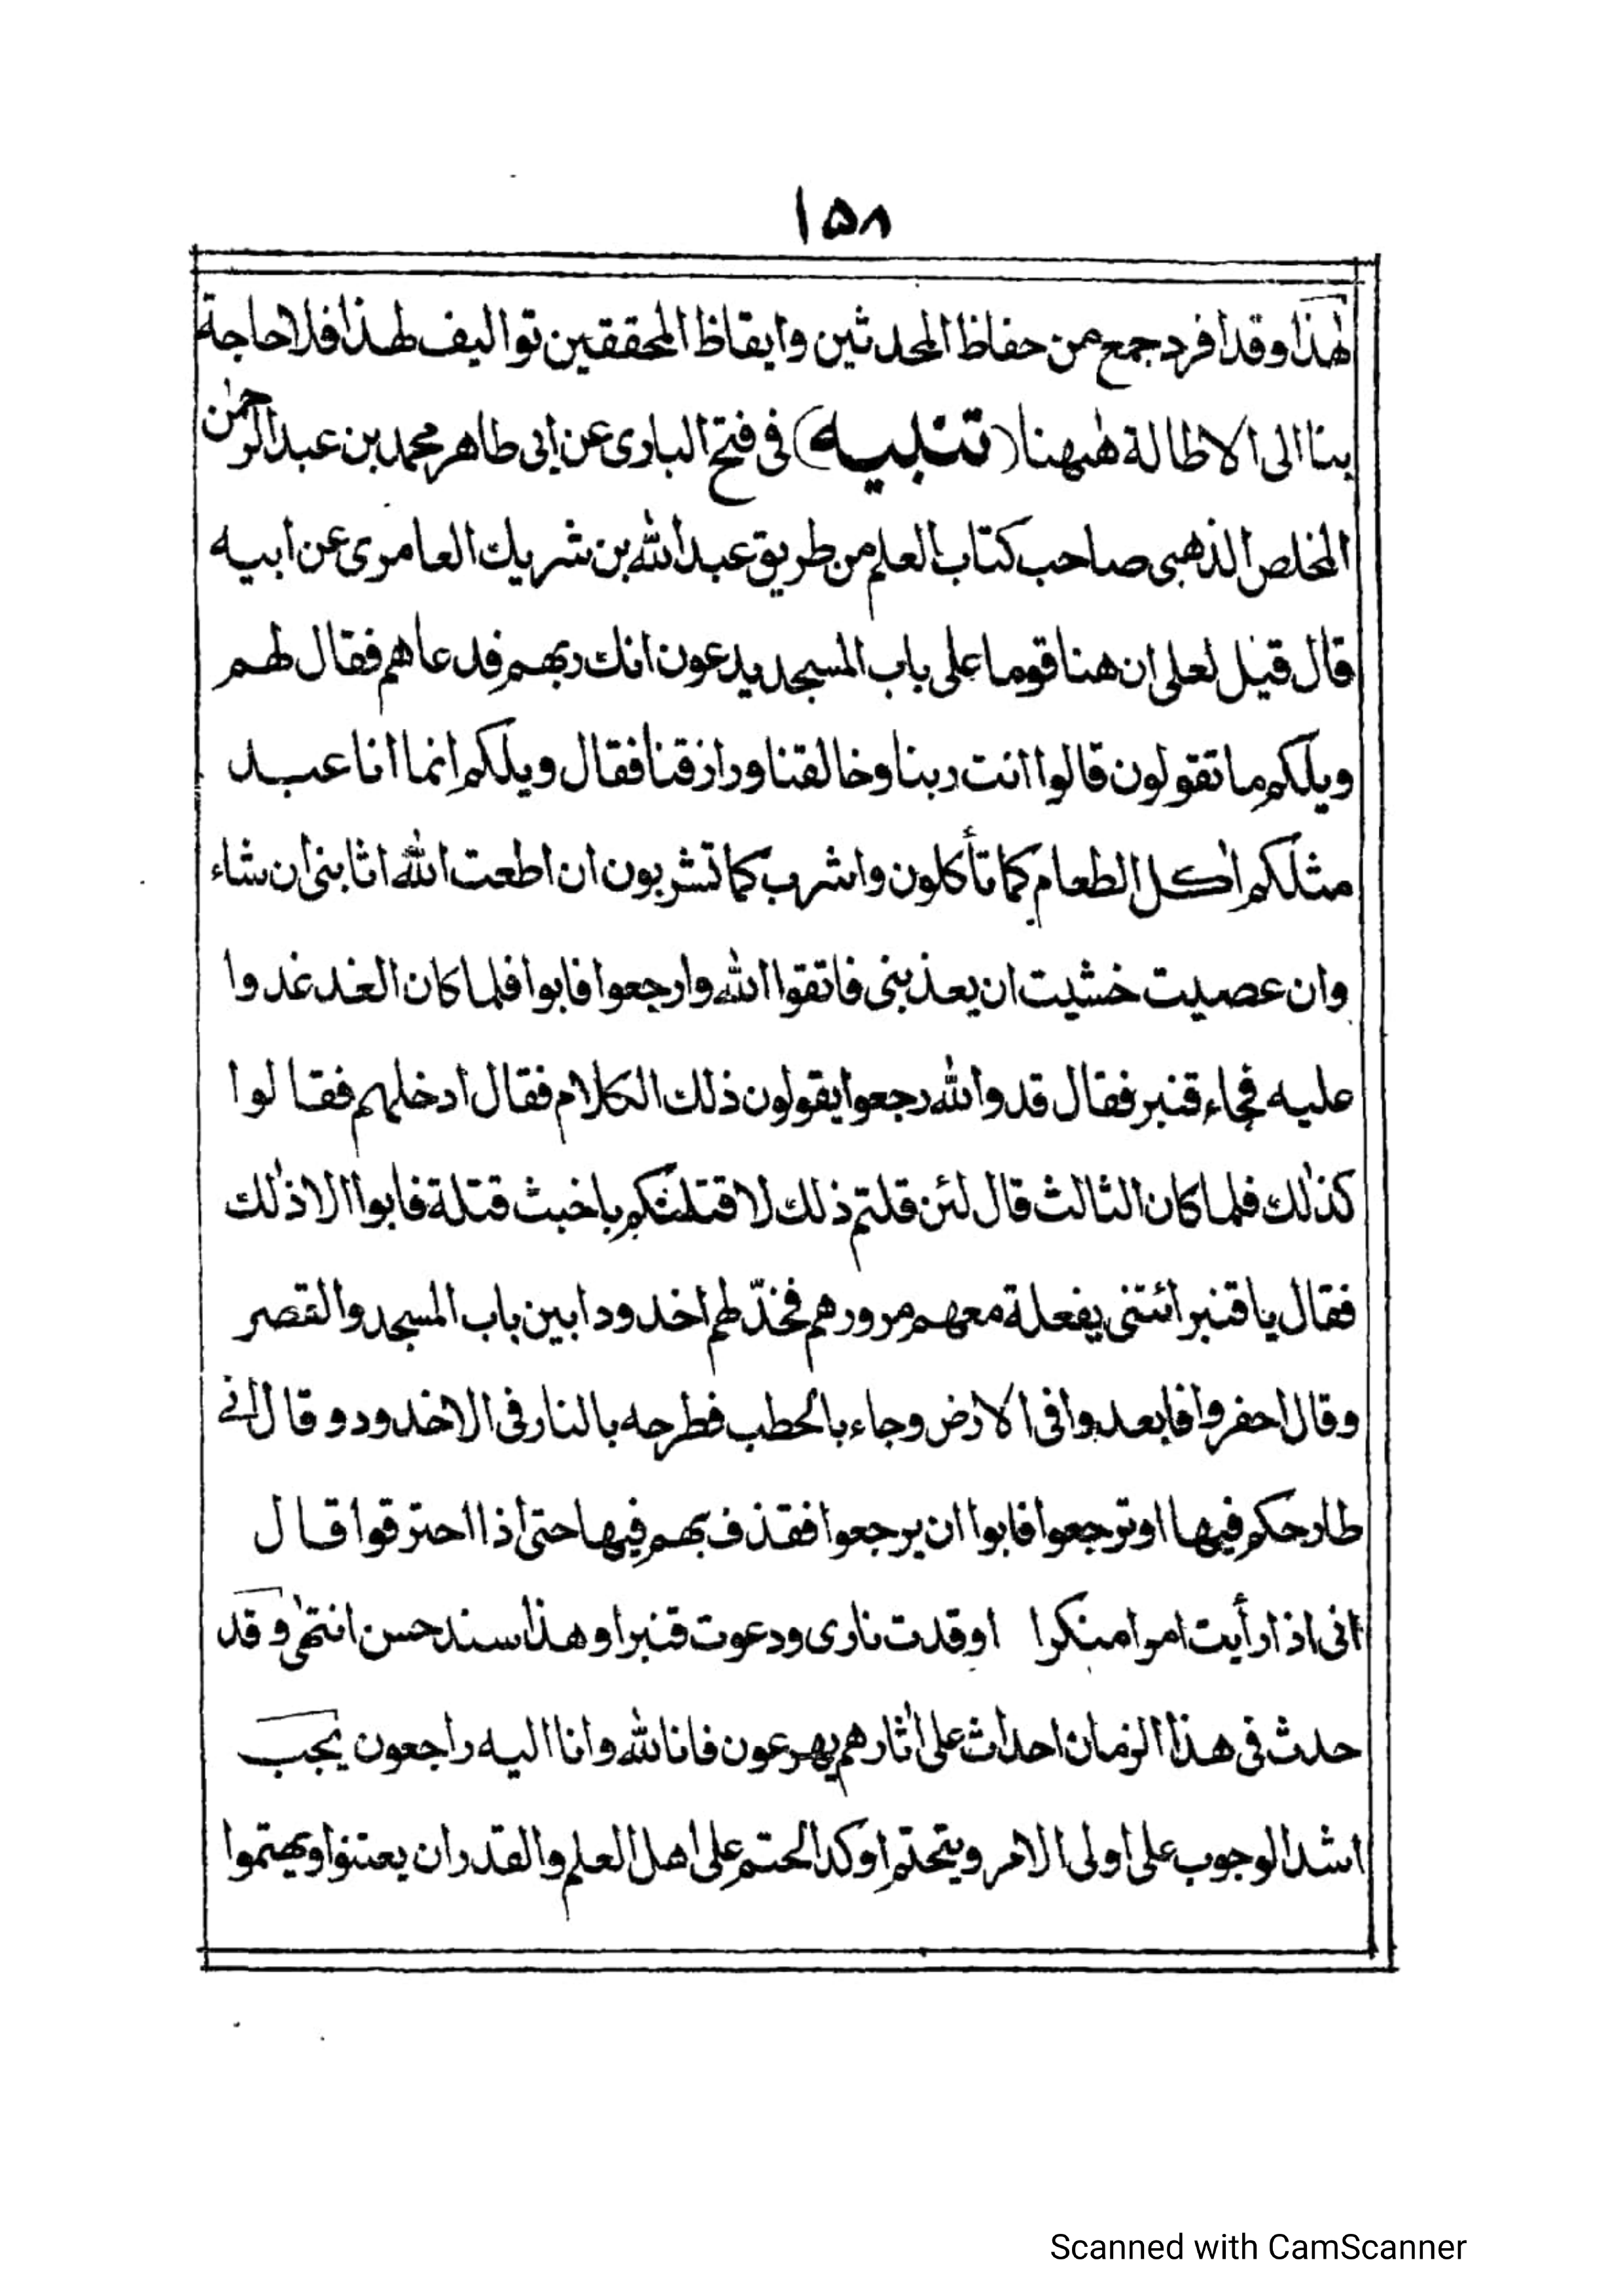 ١٥٨
لهذا وقد افرد جمع من حفاظ المحدثين وايقاظ المحققين تواليف لهذا فلا حاجة
بنا الى الاطالة ههنا (تنبيه) فى فتح البارى عن ابى طاهر محمد بن عبد الرحمٰن
المخلص الذهبى صاحب كتاب العلم من طريق عبد الله بن شريك العامرى عن ابيه
قال قيل لعلى ان هنا قوما على باب المسجد يدعون انك ربهم فدعاهم فقال لهم
ويلكم ما تقولون قالوا انت ربنا وخالقنا ورازقنا فقال ويلكم انما انا عبد
مثلكم اٰكل الطعام كما تأكلون واشرب كما تشربون ان اطعت الله اثابنى ان شاء
وان عصيت خشيت ان يعذبنى فاتقوا الله وارجعوا فابوا فلما كان الغد غدوا
عليه فجاء قنبر فقال قد والله رجعوا يقولون ذلك الكلام فقال ادخلهم فقالوا
كذٰلك فلما كان الثالث قال لئن قلتم ذلك لاقتلنكم باخبث قتلة فابوا الا ذٰلك
فقال يا قنبر ائتنى بفعلة معهم مرورهم فخدّ لهم اخدودا بين باب المسجد والقصر
وقال احفروا فابعدوا فى الارض وجاء بالحطب فطرحه بالنار فى الاخدود وقال انى
طارحكم فيها او ترجعوا فابوا ان يرجعوا فقذف بهم فيها حتى اذا احترقوا قال
انى اذا رأيت امرا منكرا اوقدت نارى ودعوت قنبرا وهذا سند حسن انتهٰى وقد
حدث فى هذا الزمان احداث على اٰثارهم يهرعون فانا لله وانا اليه راجعون يجب
اشد الوجوب على اولى الامر ويتحتم اوكد الحتم على اهل العلم والقدر ان يعتنوا ويهتموا
Scanned with CamScanner